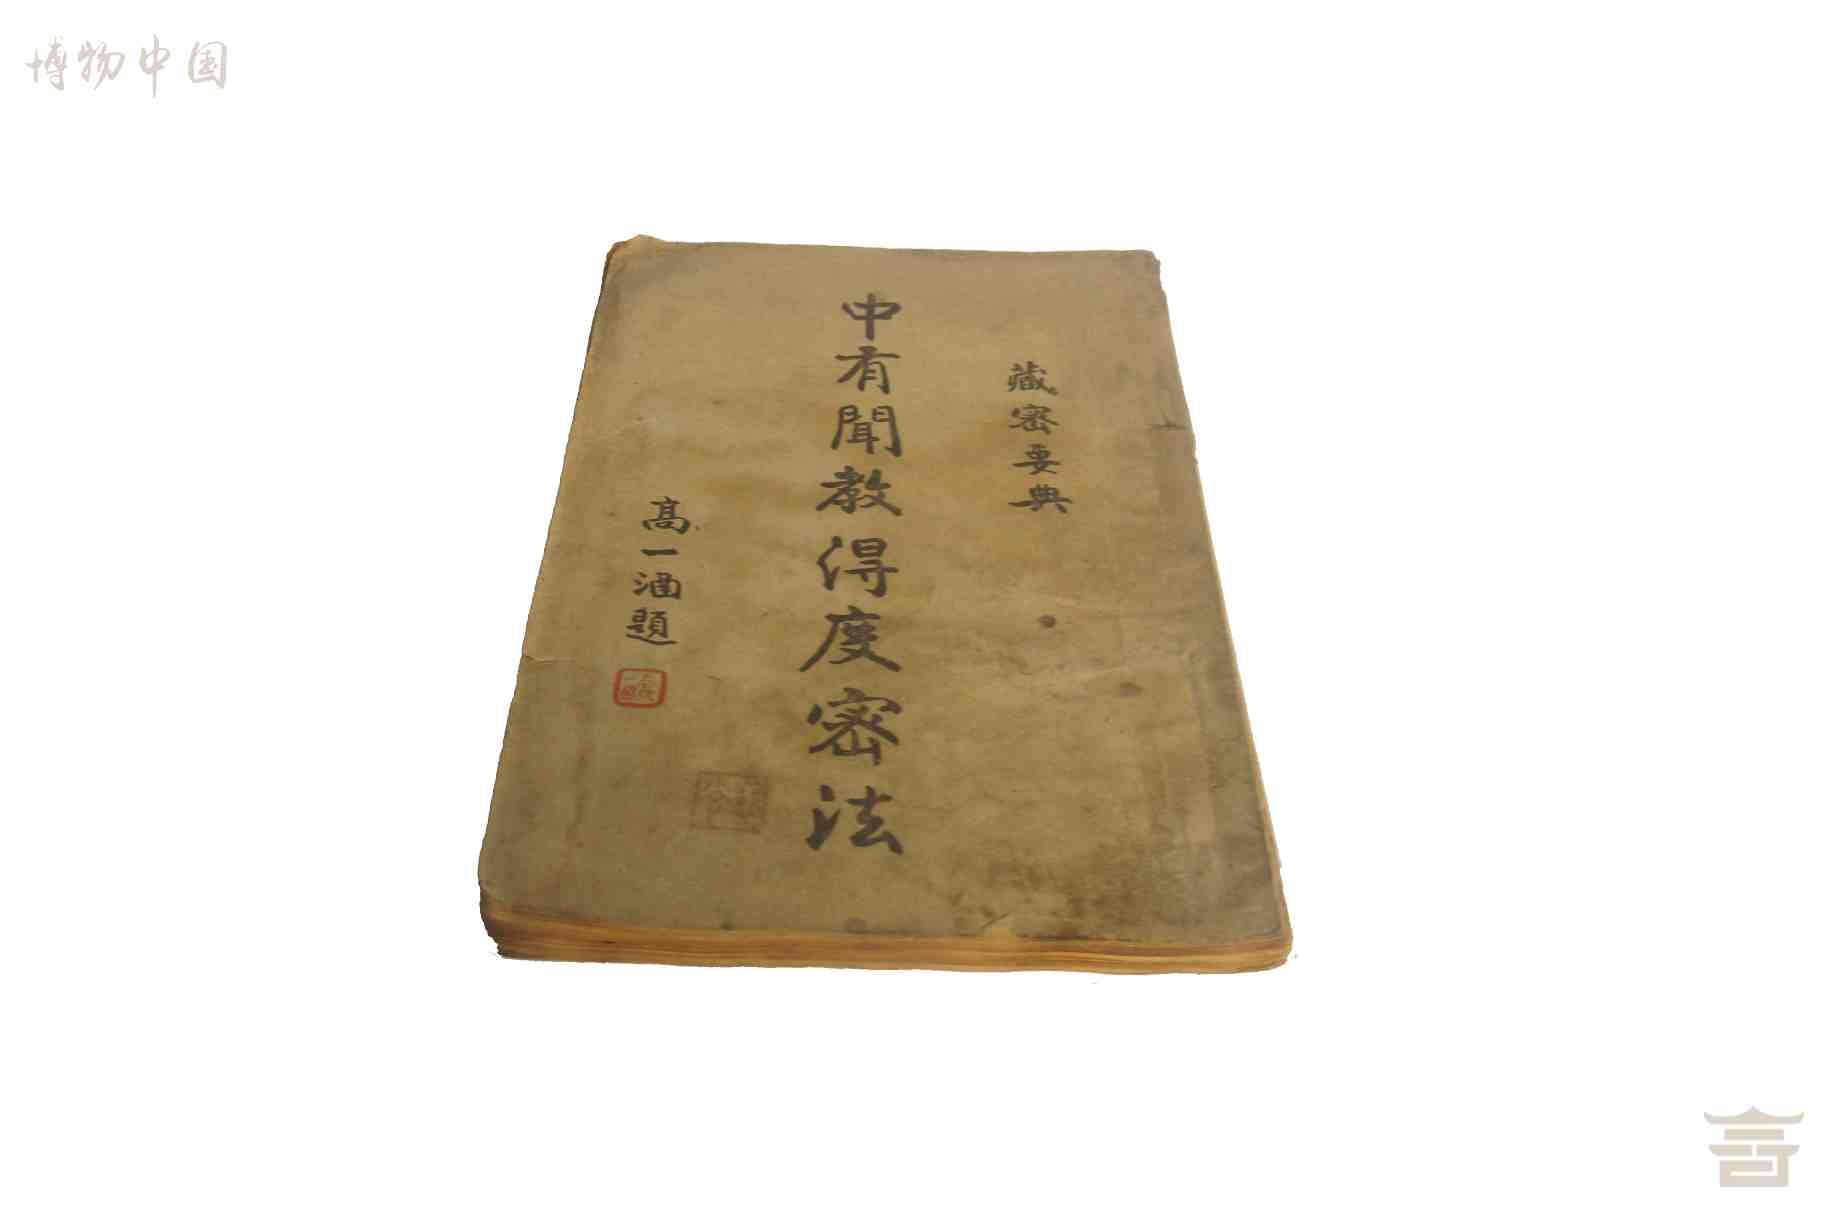 博物中国
藏密要典
中有聞教得度密法
高一涵題